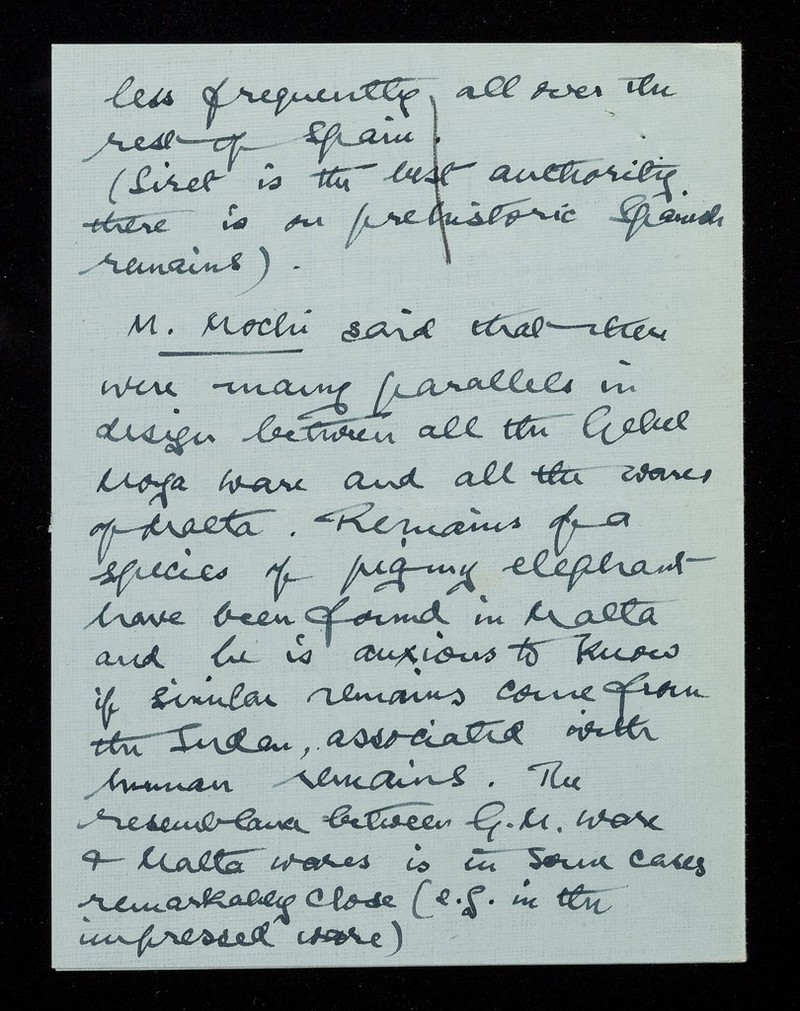 less frequently all over the
rest of Spain.
(Siret is the best authority
there is on prehistoric Spanish
remains).
M. Mochi said that there
were many parallels in
design between all the Gebel
Moya ware and all the wares
of Malta. Remains of a
species of pigmy elephant
have been found in Malta
and he is anxious to know
if similar remains come from
the Sudan, associated with
human remains. The
resemblance between G.M. ware
& Malta wares is in some cases
remarkably close (e.g. in the
impressed ware)